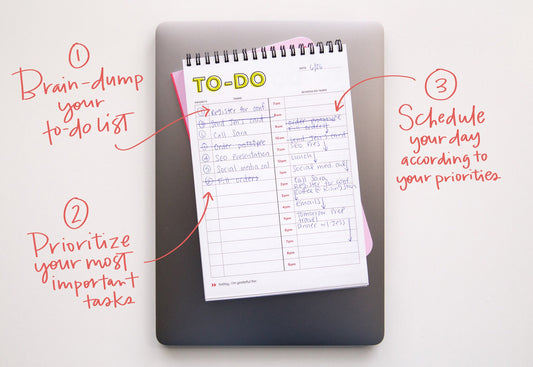 1
Brain-dump
your
to-do list
2
Prioritize
your most
important
tasks
3
Schedule
your day
according to
your priorities
TO-DO
DATE 6/26
PRIORITY TASK
Register for conf
Send Jen's card
Call Sara
Order postage
SEO Presentation
Social media cal
Fill orders
SCHEDULED TASKS
7am
8am
Order postage
Fill orders
Send Jen's card
SEO Pres
Lunch
Social med cal
Call Sara
Register for conf
Emails
Tomorrow Prep
Travel
Dinner w/ Jess
4pm
5pm
6pm
7pm
8pm
9pm
Today, I'm grateful for: